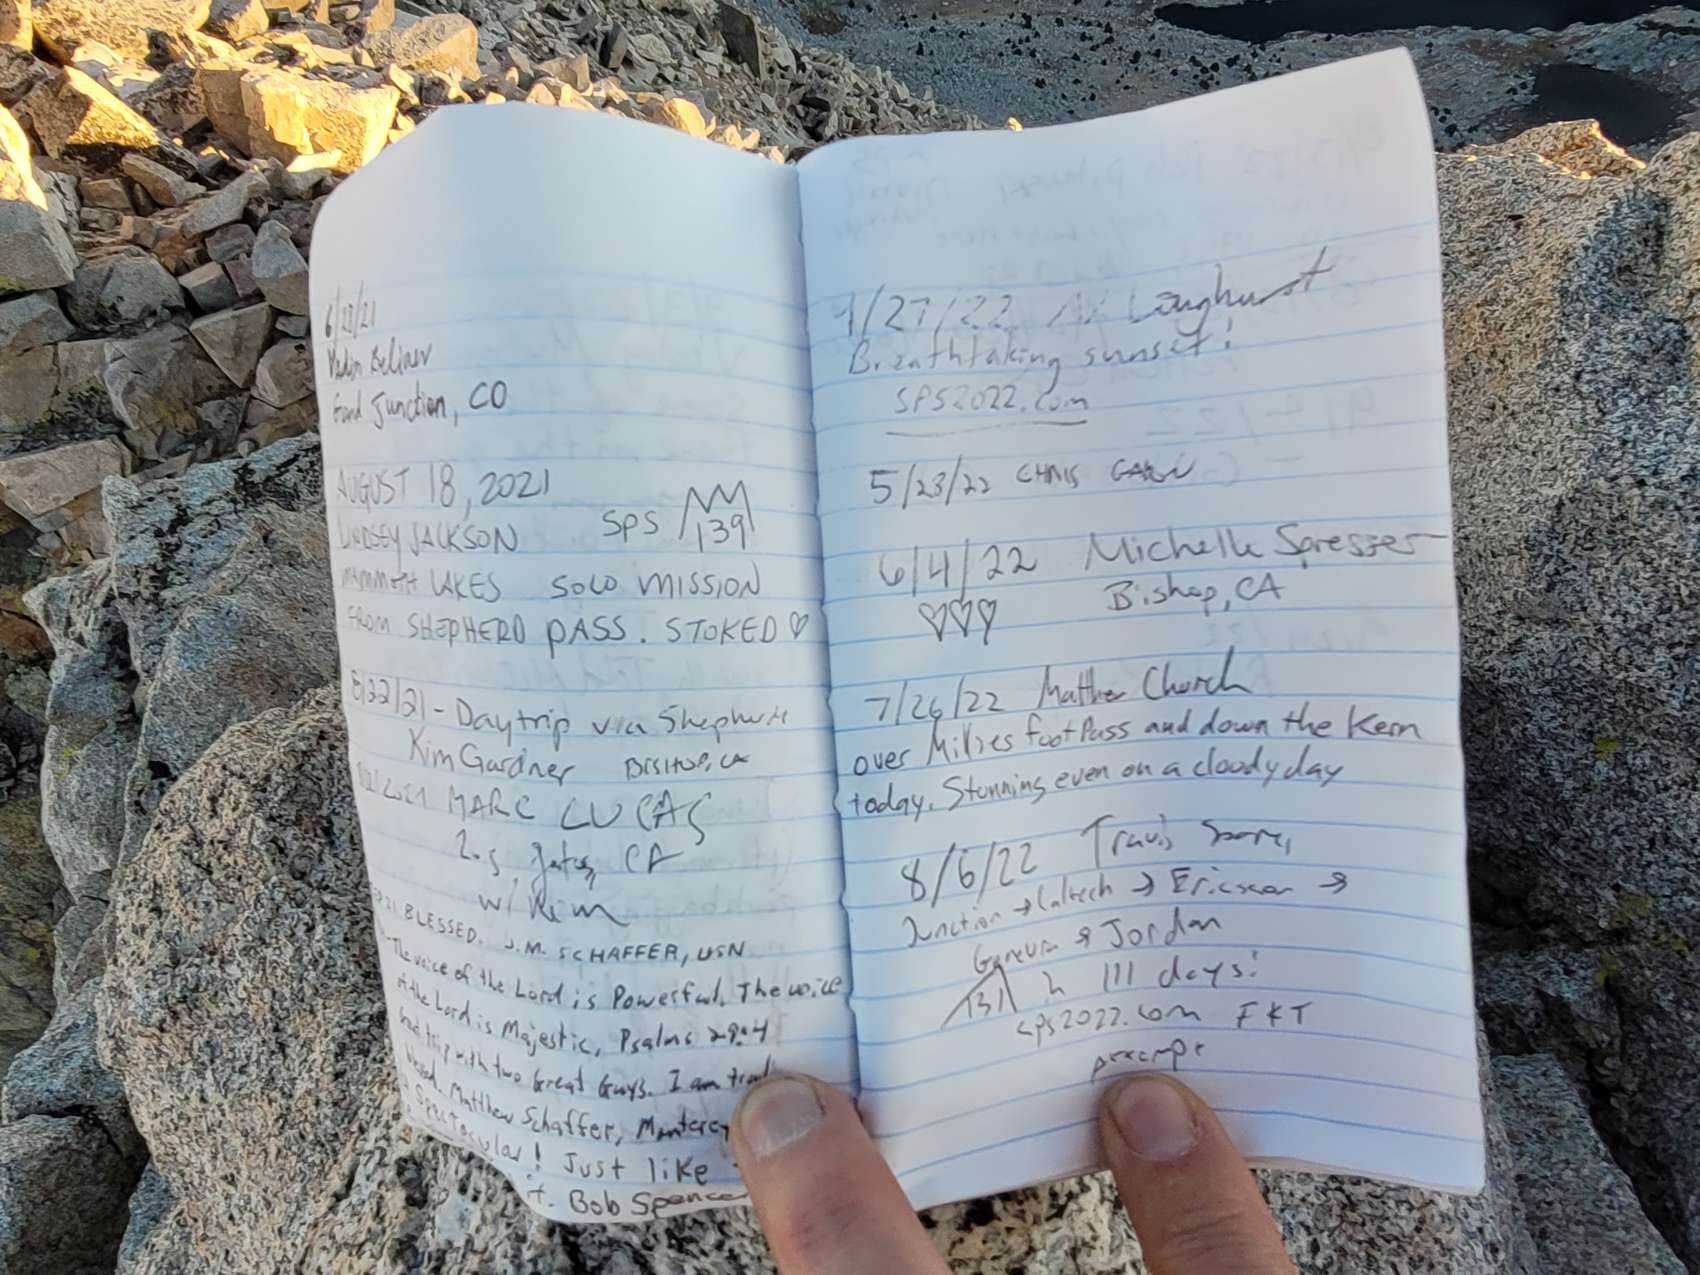 6/28/21
Grand Junction, CO
AUGUST 18, 2021
LINDSEY JACKSON SPS 139
MAMMOTH LAKES SOLO MISSION
FROM SHEPHERD PASS. STOKED ♡
8/22/21 - Daytrip via Shepherd
Kim Gardner BISHOP, CA
2021 MARC LUCAS
Los Gatos, CA
w/ Kim
21 BLESSED. J.M. SCHAFFER, USN
The voice of the Lord is Powerful. The voice
of the Lord is Majestic, Psalms 29:4
Great trip with two Great Guys. I am truly
blessed. Matthew Schaffer, Monterey
Spectacular! Just like
it. Bob Spencer
4/27/22 Longhurst
Breathtaking sunset!
SPS2022.com
5/23/22 CHRIS
6/4/22 Michelle Spresser
♡♡♡ Bishop, CA
7/26/22 Matthew Church
over Milk's foot Pass and down the Kern
today. Stunning even on a cloudy day
8/6/22 Travis
Junction → Caltech → Ericsson →
Geneva → Jordan
131 in 111 days!
sps2022.com FKT
attempt